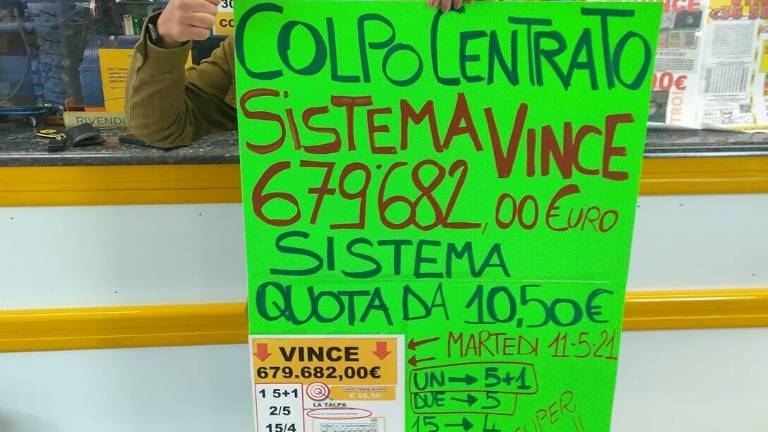 COLPO CENTRATO
SISTEMA VINCE
679.682,00 EURO
SISTEMA
QUOTA DA 10,50€
MARTEDI 11-5-21
UN → 5+1
DUE → 5
15 → 4
SUPER
VINCE
679.682,00€
1 5+1
2/5
15/4
LA TALPA
€ 10,50
RIVENDI
30
CO
00€